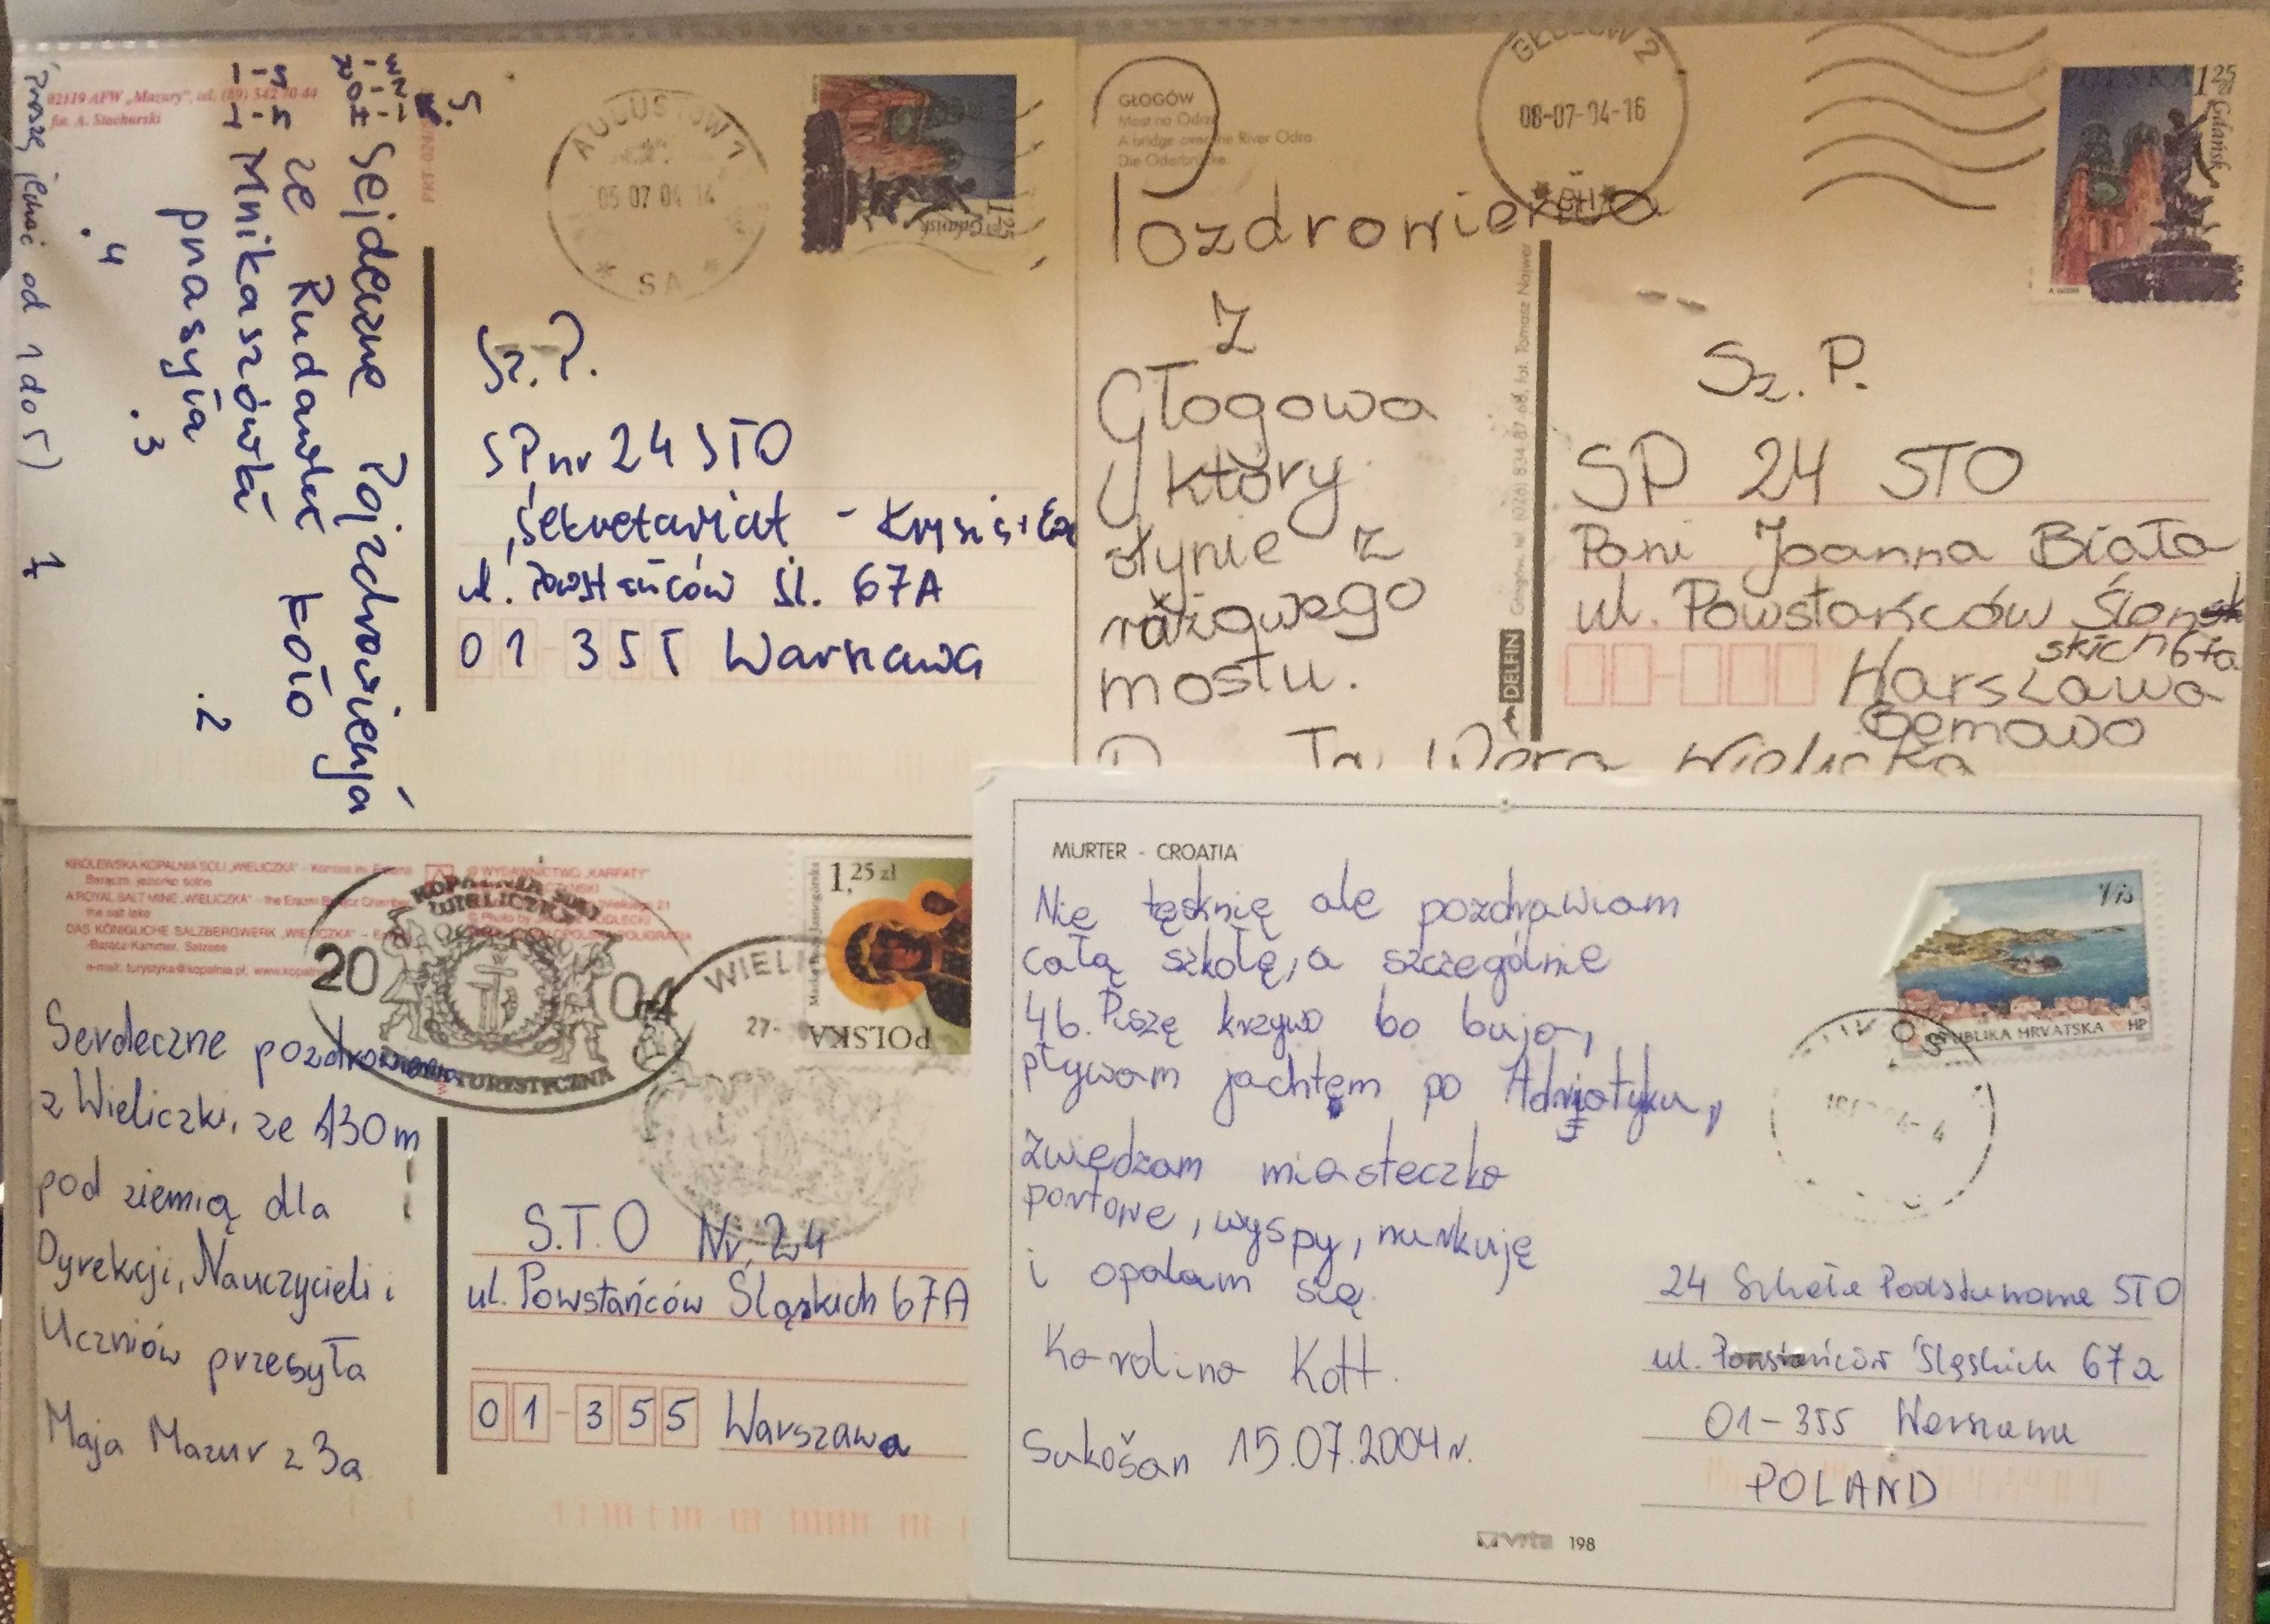 02119 AFW „Mazury", tel. (89) 542 70 44
fot. A. Stachurski
Sejdeczne Pojzdrowienja
ze Rudawki koło
Mnikaszówki
pnasyła
5.
.4
.3
.2
1
jechać od 1 do 5)
AUGUSTÓW 1
05 07 04 14
* SA *
1,25
Gdańsk
Sz.P.
SP nr 24 STO
Sekretariat -
ul. Powstańców Śl. 67A
01 355 Warszawa
GŁOGÓW
Most na Odrze
A bridge over the River Odra.
Die Oderbrücke.
GŁOGÓW 2
08-07-04-16
POLSKA 1,25 zł
Gdańsk
Pozdrowienia
z
Głogowa
który
słynie z
różowego
mostu.
DELFIN Głogów, tel. (076) 834-87-68, fot. Tomasz Najwer
Sz. P.
SP 24 STO
Pani Joanna Biała
ul. Powstańców Ślon
skich 67a
Warszawa
Bemowo
KRÓLEWSKA KOPALNIA SOLI „WIELICZKA" - Komora im. Erazma
Barącza, jeziorko solne
A ROYAL SALT MINE „WIELICZKA" - the Erazm Barącz Chamber
the salt lake
DAS KÖNIGLICHE SALZBERGWERK „WIELICZKA" -
-Barącz-Kammer, Salzsee
e-mail: turystyka@kopalnia.pl, www.kopalnia
WYDAWNICTWO „KARPATY"
KOPALNIA SOLI
WIELICZKA
2004
TURYSTYCZNA
WIELI
27-
1,25 zł
POLSKA
Serdeczne pozdrowienia
z Wieliczki, ze 130m
pod ziemią dla
Dyrekcji, Nauczycieli i
Uczniów przesyła
Maja Mazur z 3a
S.T.O Nr. 24
ul. Powstańców Śląskich 67A
01-355 Warszawa
MURTER - CROATIA
Nie tęsknię ale pozdrawiam
całą szkołę, a szczególnie
4b. Piszę krzywo bo buja,
pływam jachtem po Adriatyku,
zwiedzam miasteczka
portowe, wyspy, nurkuję
i opalam się.
Karolina Kott.
Sukošan 15.07.2004 r.
Vis
REPUBLIKA HRVATSKA HP
24 Szkoła Podstawowa STO
ul. Powstańców Śląskich 67a
01-355 Warszawa
POLAND
198